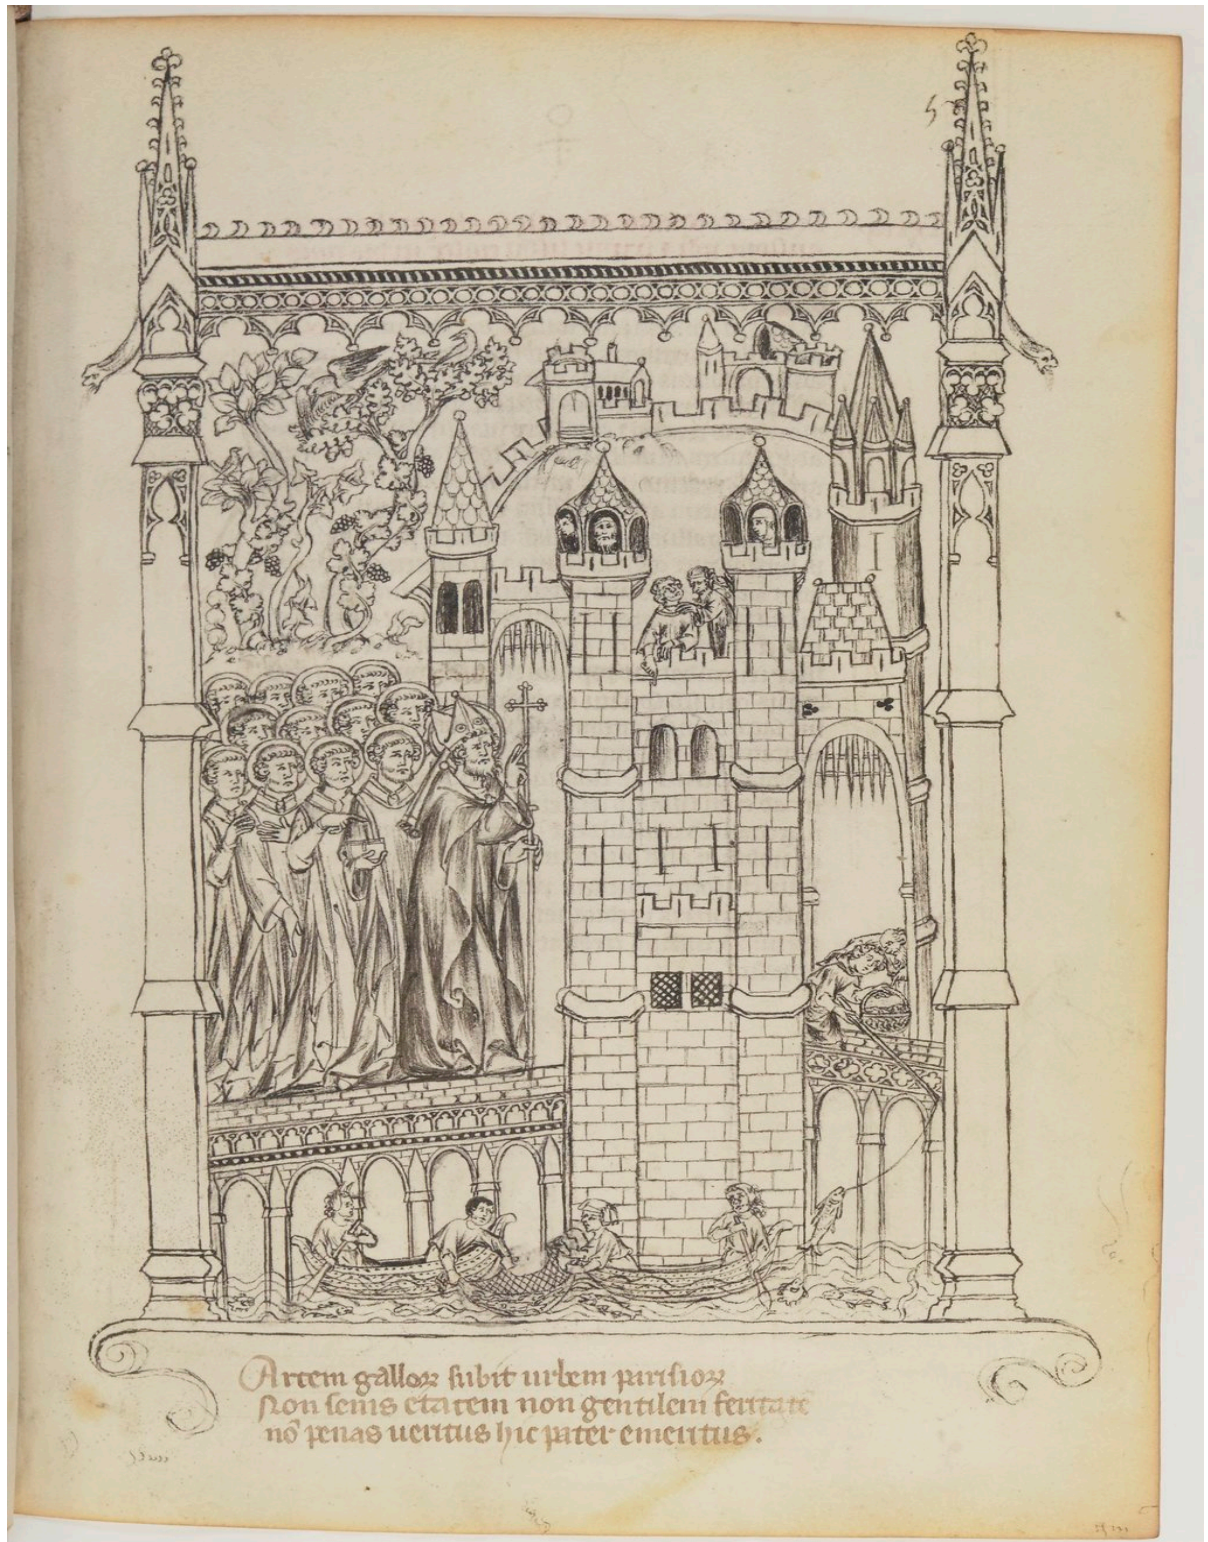 Artem galloꝝ subit urbem parisioꝝ
Non senis etatem non gentilem feritate
nō penas ueritus hic pater emeritus.